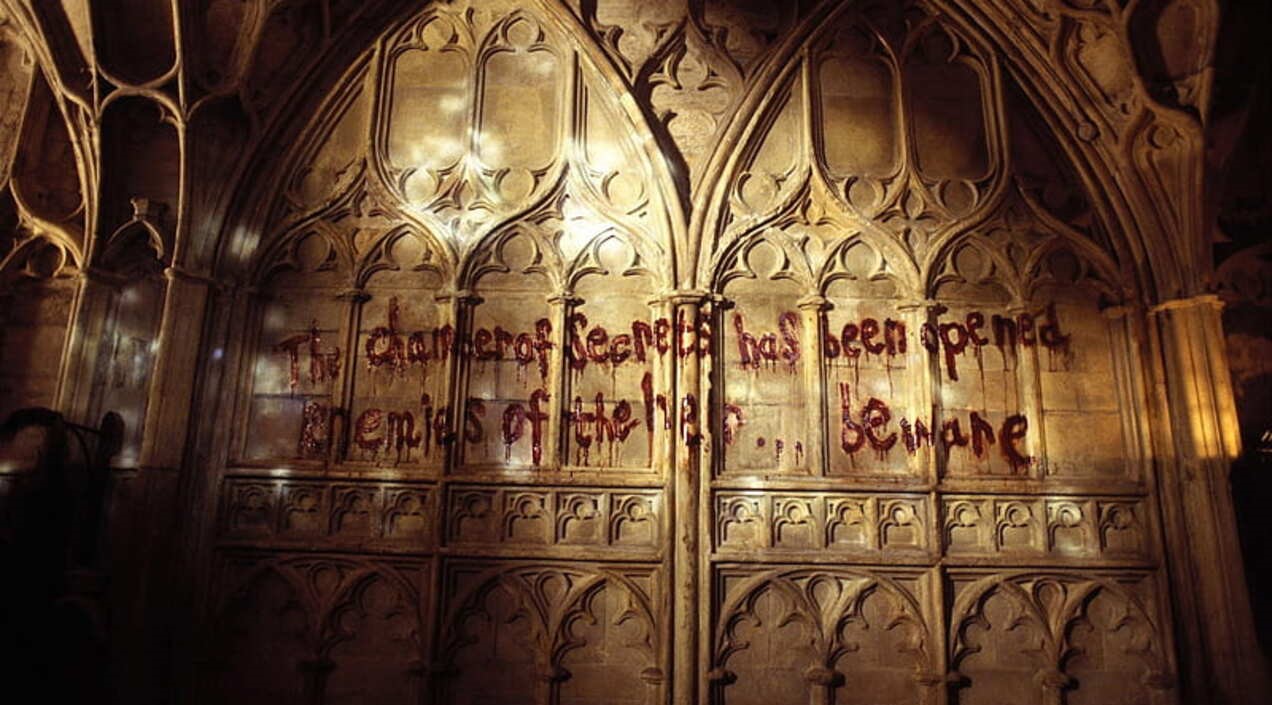 The chamber of Secrets has been opened
enemies of the heir... beware